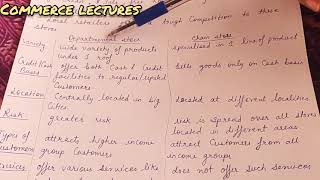 Commerce lectures
local retailers tough Competition to these
stores
Departmental store chain store
Variety wide variety of products specialised in 1 line of product
under 1 roof
Credit/Cash offer both Cash & Credit sells goods only on Cash basis
Basis facilities to regular/reputed
Customers
Location Centrally located in big Located at different localities
Cities
Risk greater risk risk is spread over all stores
located in different areas
Types of attracts higher income attract Customers from all
Customers group Customers income groups
Services offer various services like does not offer such services